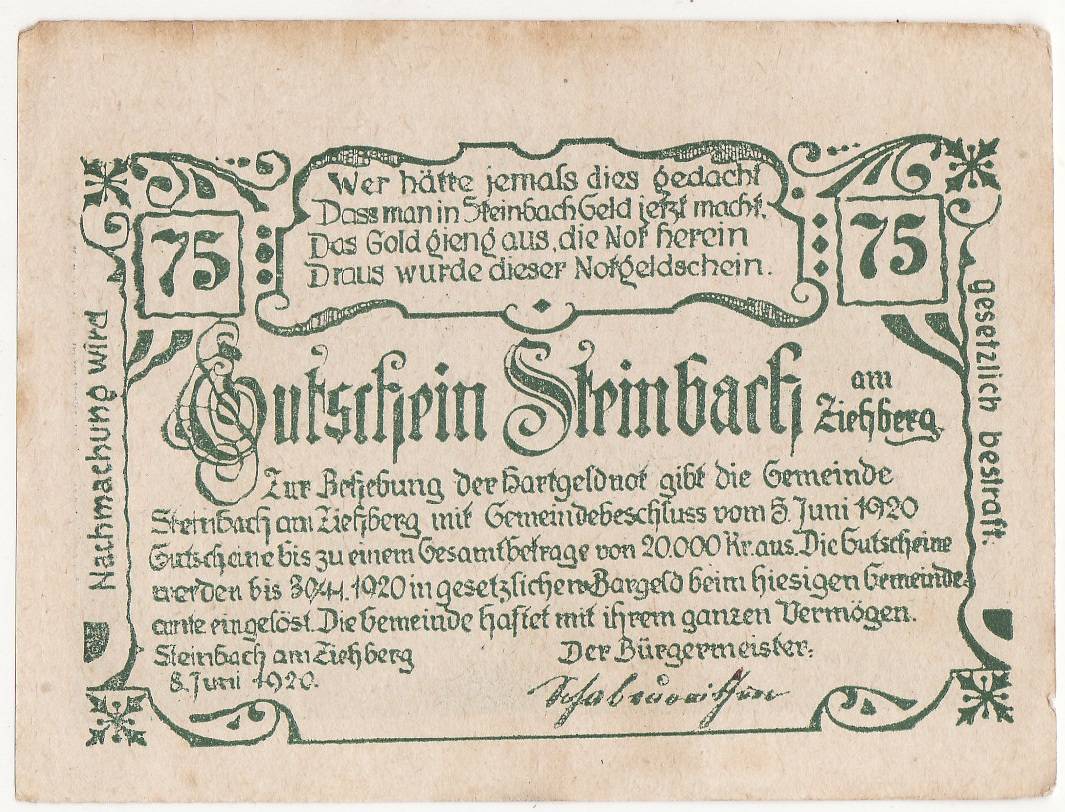 Wer hätte jemals dies gedacht
Dass man in Steinbach Geld jetzt macht,
Das Gold gieng aus, die Not herein
Draus wurde dieser Notgeldschein.
75
75
Nachmachung wird
gesetzlich bestraft.
Gutschein Steinbach am
Ziehberg
Zur Behebung der Hartgeldnot gibt die Gemeinde
Steinbach am Ziehberg mit Gemeindebeschluss vom 5. Juni 1920
Gutscheine bis zu einem Gesamtbetrage von 20.000 Kr. aus. Die Gutscheine
werden bis 1920 in gesetzlichem Bargeld beim hiesigen Gemeinde-
amte eingelöst. Die Gemeinde haftet mit ihrem ganzen Vermögen.
Steinbach am Ziehberg
Der Bürgermeister:
8. Juni 1920.